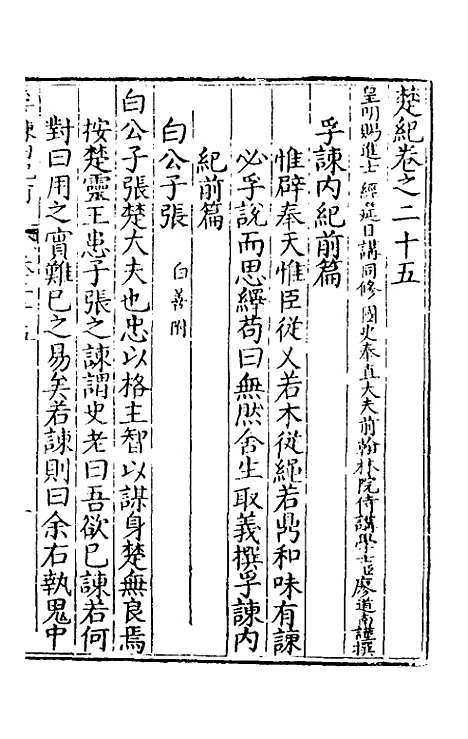 楚紀卷之二十五
皇明賜進士 經筵日講同修 國史奉直大夫前翰林院侍講學士臣廖道南謹撰
孚諫內紀前篇
惟辟奉天惟臣從乂若木從繩若鼎和味有諫
必孚說而思繹苟曰無然舍生取義撰孚諫內
紀前篇
白公子張 白善附
白公子張楚大夫也忠以格主智以謀身楚無良焉
按楚靈王患子張之諫謂史老曰吾欲已諫若何
對曰用之實難已之易矣若諫則曰余右執鬼中